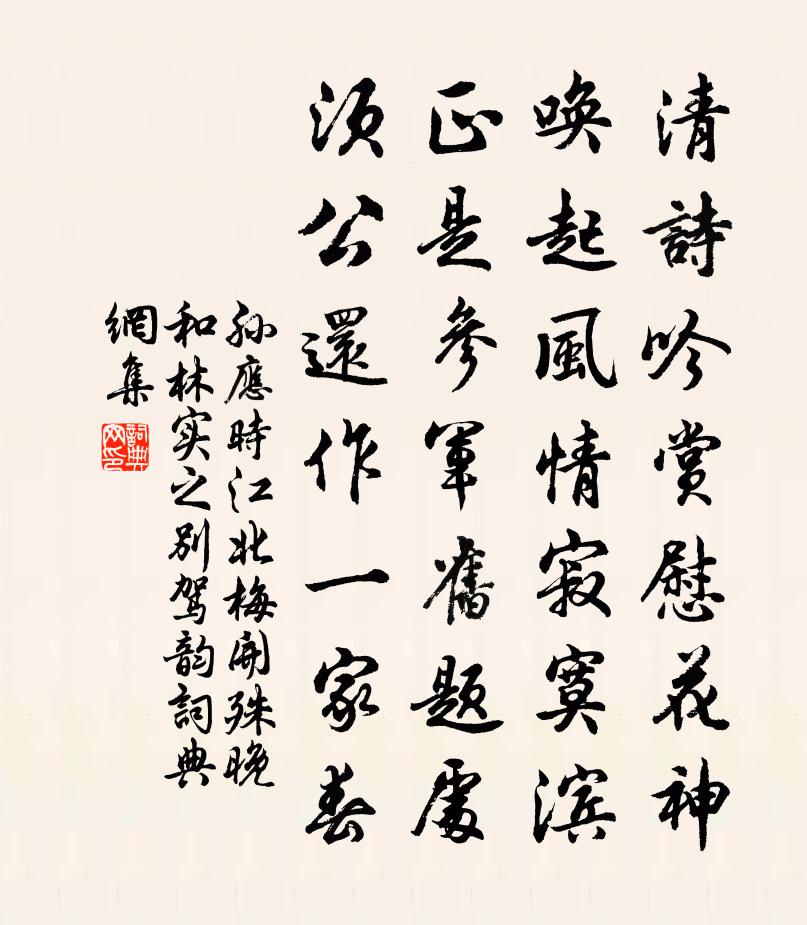 清詩吟賞慰花神
喚起風情寂寞滨
正是參軍舊題處
須公還作一家春
孙應時江北梅開殊晚
和林实之别驾韵詞典
網集
詞典
网印